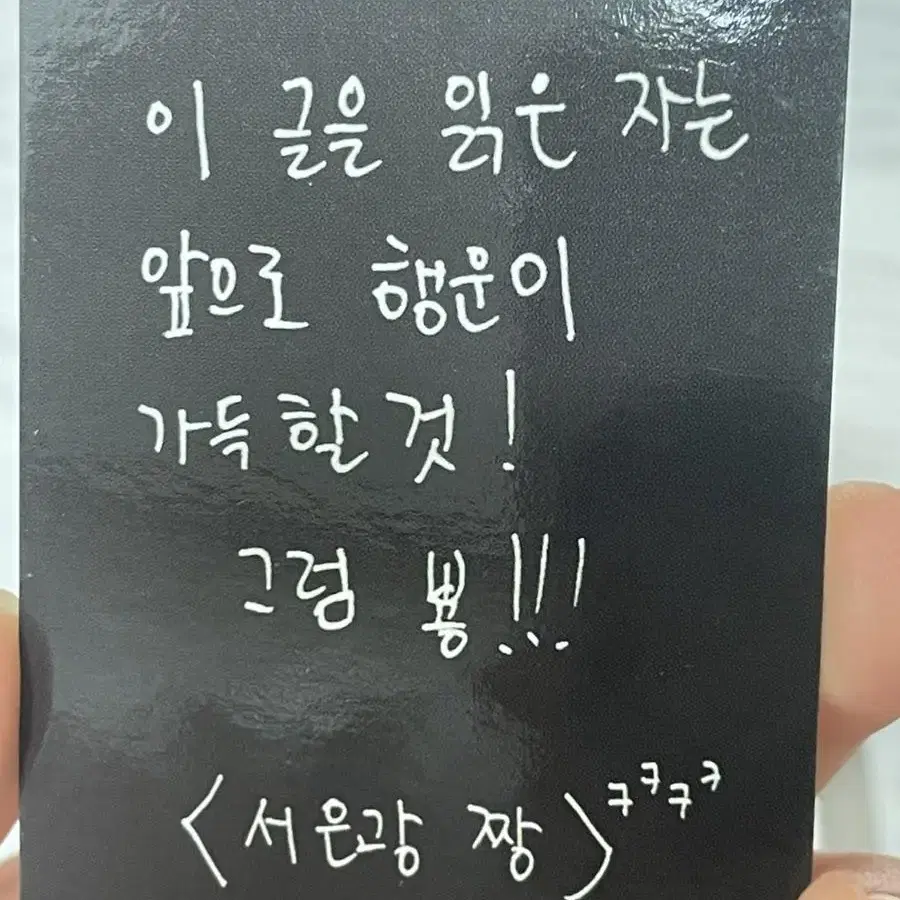 이 글을 읽은 자는
앞으로 행운이
가득할 것!
그럼 뿅!!!
<서은광 짱>ㅋㅋㅋㅋ